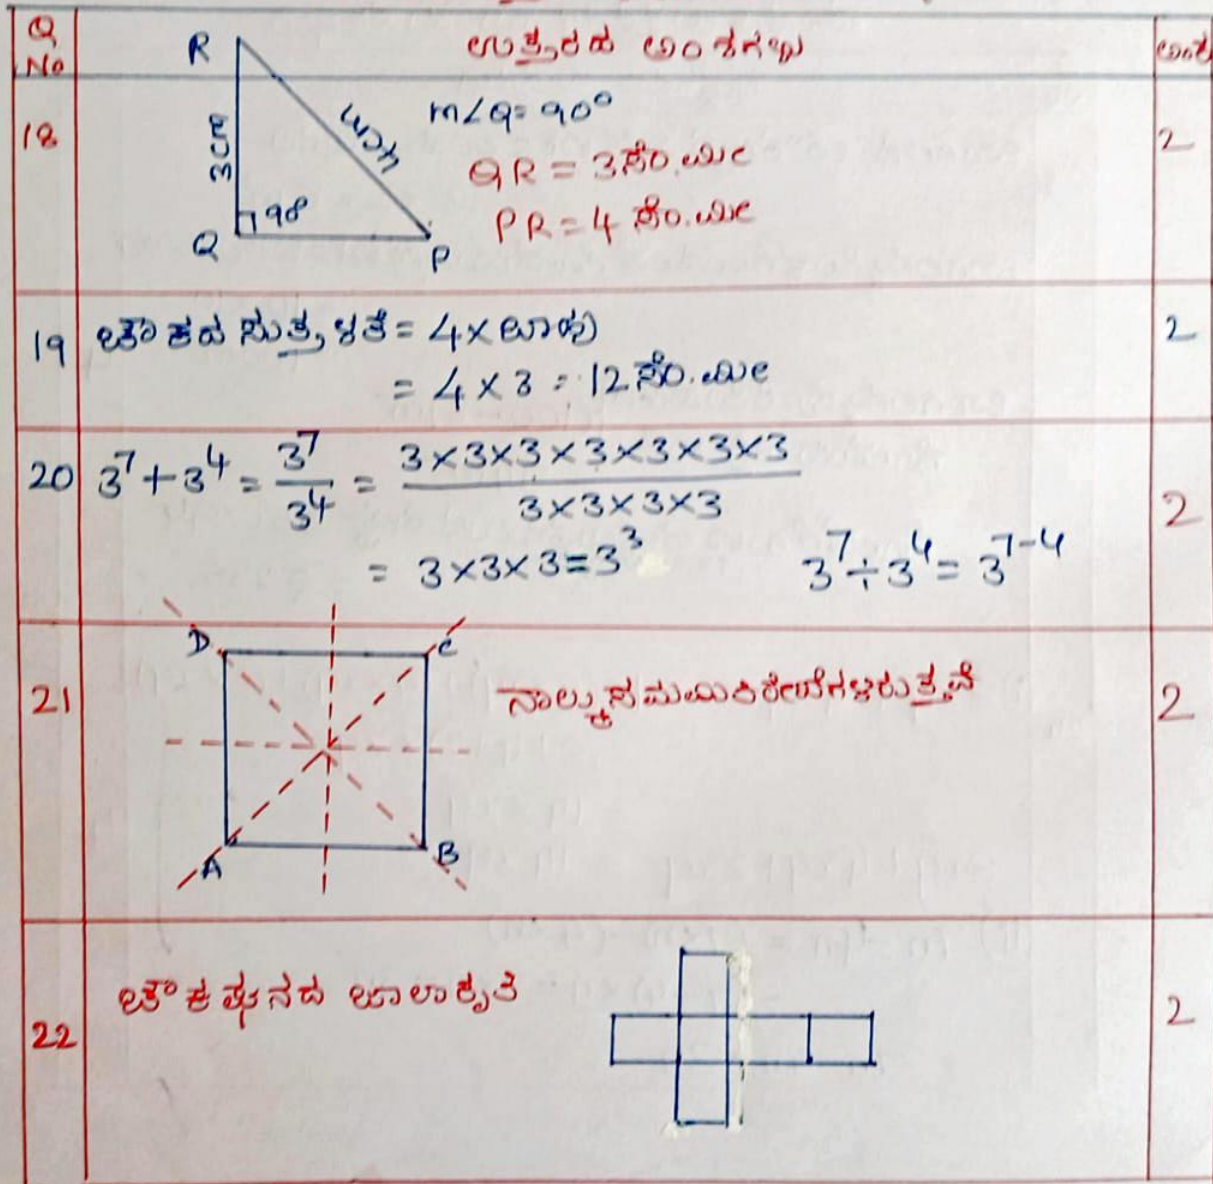 Q No ಉತ್ತರದ ಅಂಶಗಳು ಅಂಕ
18 R 3cm 4cm 90° Q P m∠Q= 90° 2
QR = 3ಸೆಂ.ಮೀ
PR = 4 ಸೆಂ.ಮೀ
19 ಚೌಕದ ಸುತ್ತಳತೆ = 4 × ಬಾಹು 2
= 4 × 3 = 12 ಸೆಂ.ಮೀ
20 3⁷+3⁴ = 3⁷/3⁴ = 3×3×3×3×3×3×3 / 3×3×3×3 2
= 3×3×3=3³ 3⁷÷3⁴= 3⁷⁻⁴
21 D C A B ನಾಲ್ಕು ಸಮಮಿತಿ ರೇಖೆಗಳಿರುತ್ತವೆ 2
22 ಚೌಕ ಘನದ ಜಾಲಾಕೃತಿ 2